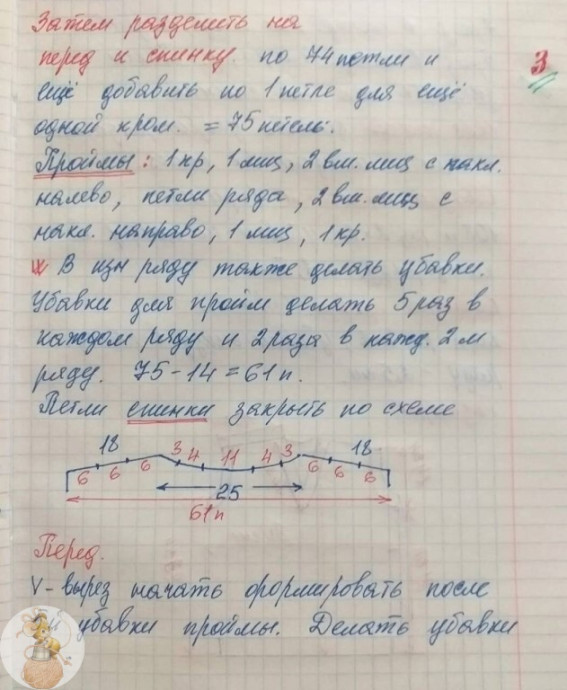 Затем разделить на
3
перед и спинку. по 74 петли и
ещё добавить по 1 петле для ещё
одной кром. = 75 петель.
Проймы: 1 кр, 1 лиц, 2 вм. лиц с накл.
налево, петли ряда, 2 вм. лиц с
накл. направо, 1 лиц, 1 кр.
В изн ряду также делать убавки.
Убавки для пройм делать 5 раз в
каждом ряду и 2 раза в кажд. 2м
ряду. 75-14=61 п.
Петли спинки закрыть по схеме
18 3 4 11 4 3 18
6 6 6 6 6 6
25
61 п
Перед.
V-вырез начать формировать после
убавки проймы. Делать убавки